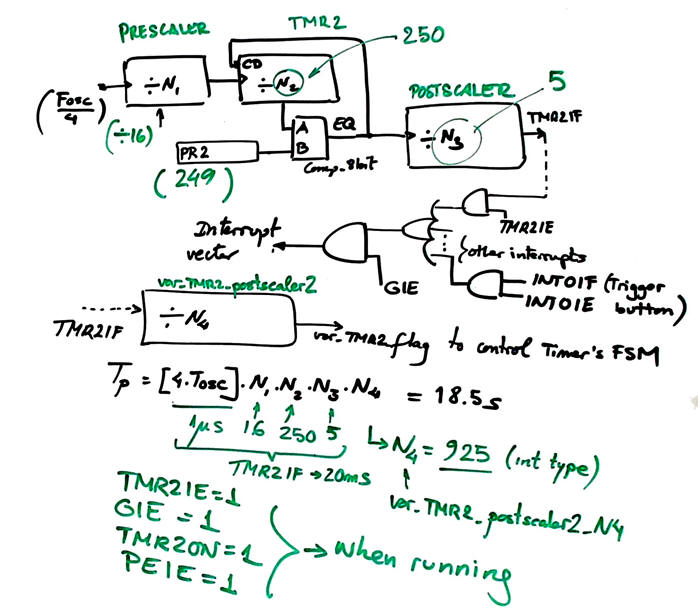 PRESCALER
TMR2
250
CD
÷N₁
÷N₂
POSTSCALER
5
(Fosc/4)
(÷16)
A
B
EQ
÷N₃
TMR2IF
PR2
Comp_8bit
(249)
TMR2IE
Interrupt
vector
other interrupts
GIE
INT0IF (Trigger
INT0IE button)
var_TMR2_postscaler2
÷N₄
TMR2IF
var_TMR2_flag to control Timer's FSM
Tp = [4.Tosc].N₁.N₂.N₃.N₄ = 18.5s
1µs 16 250 5
N₄ = 925 (int type)
TMR2IF → 20ms
var_TMR2_postscaler2_N4
TMR2IE=1
GIE =1
TMR2ON=1
PEIE=1
→ when running